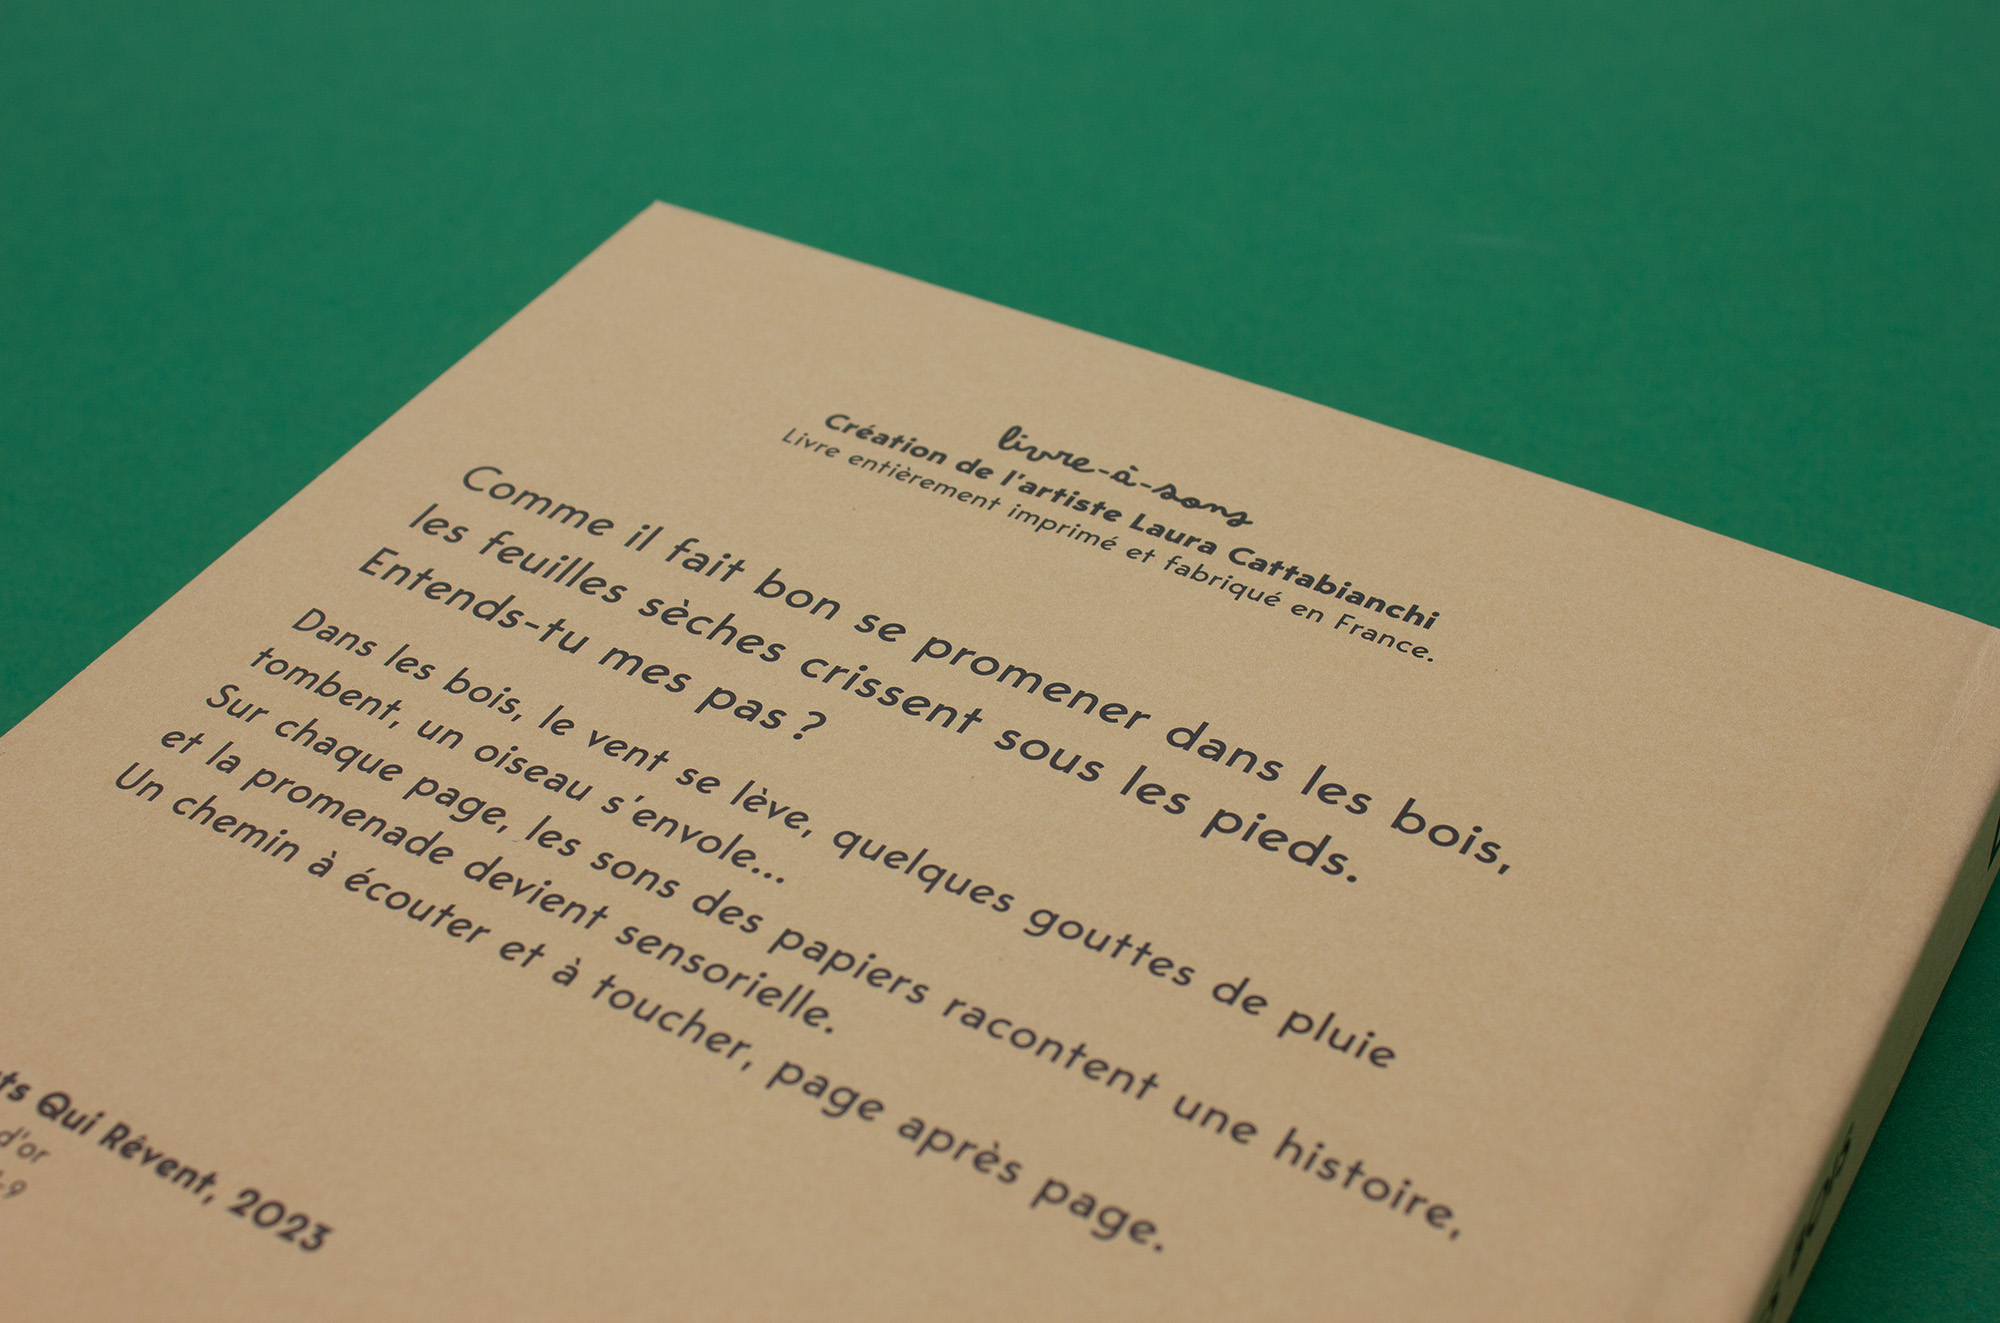 livre-à-sons
Création de l'artiste Laura Cattabianchi
Livre entièrement imprimé et fabriqué en France.
Comme il fait bon se promener dans les bois,
les feuilles sèches crissent sous les pieds.
Entends-tu mes pas ?
Dans les bois, le vent se lève, quelques gouttes de pluie
tombent, un oiseau s'envole...
Sur chaque page, les sons des papiers racontent une histoire,
et la promenade devient sensorielle.
Un chemin à écouter et à toucher, page après page.
Qui Rêvent, 2023
d'or